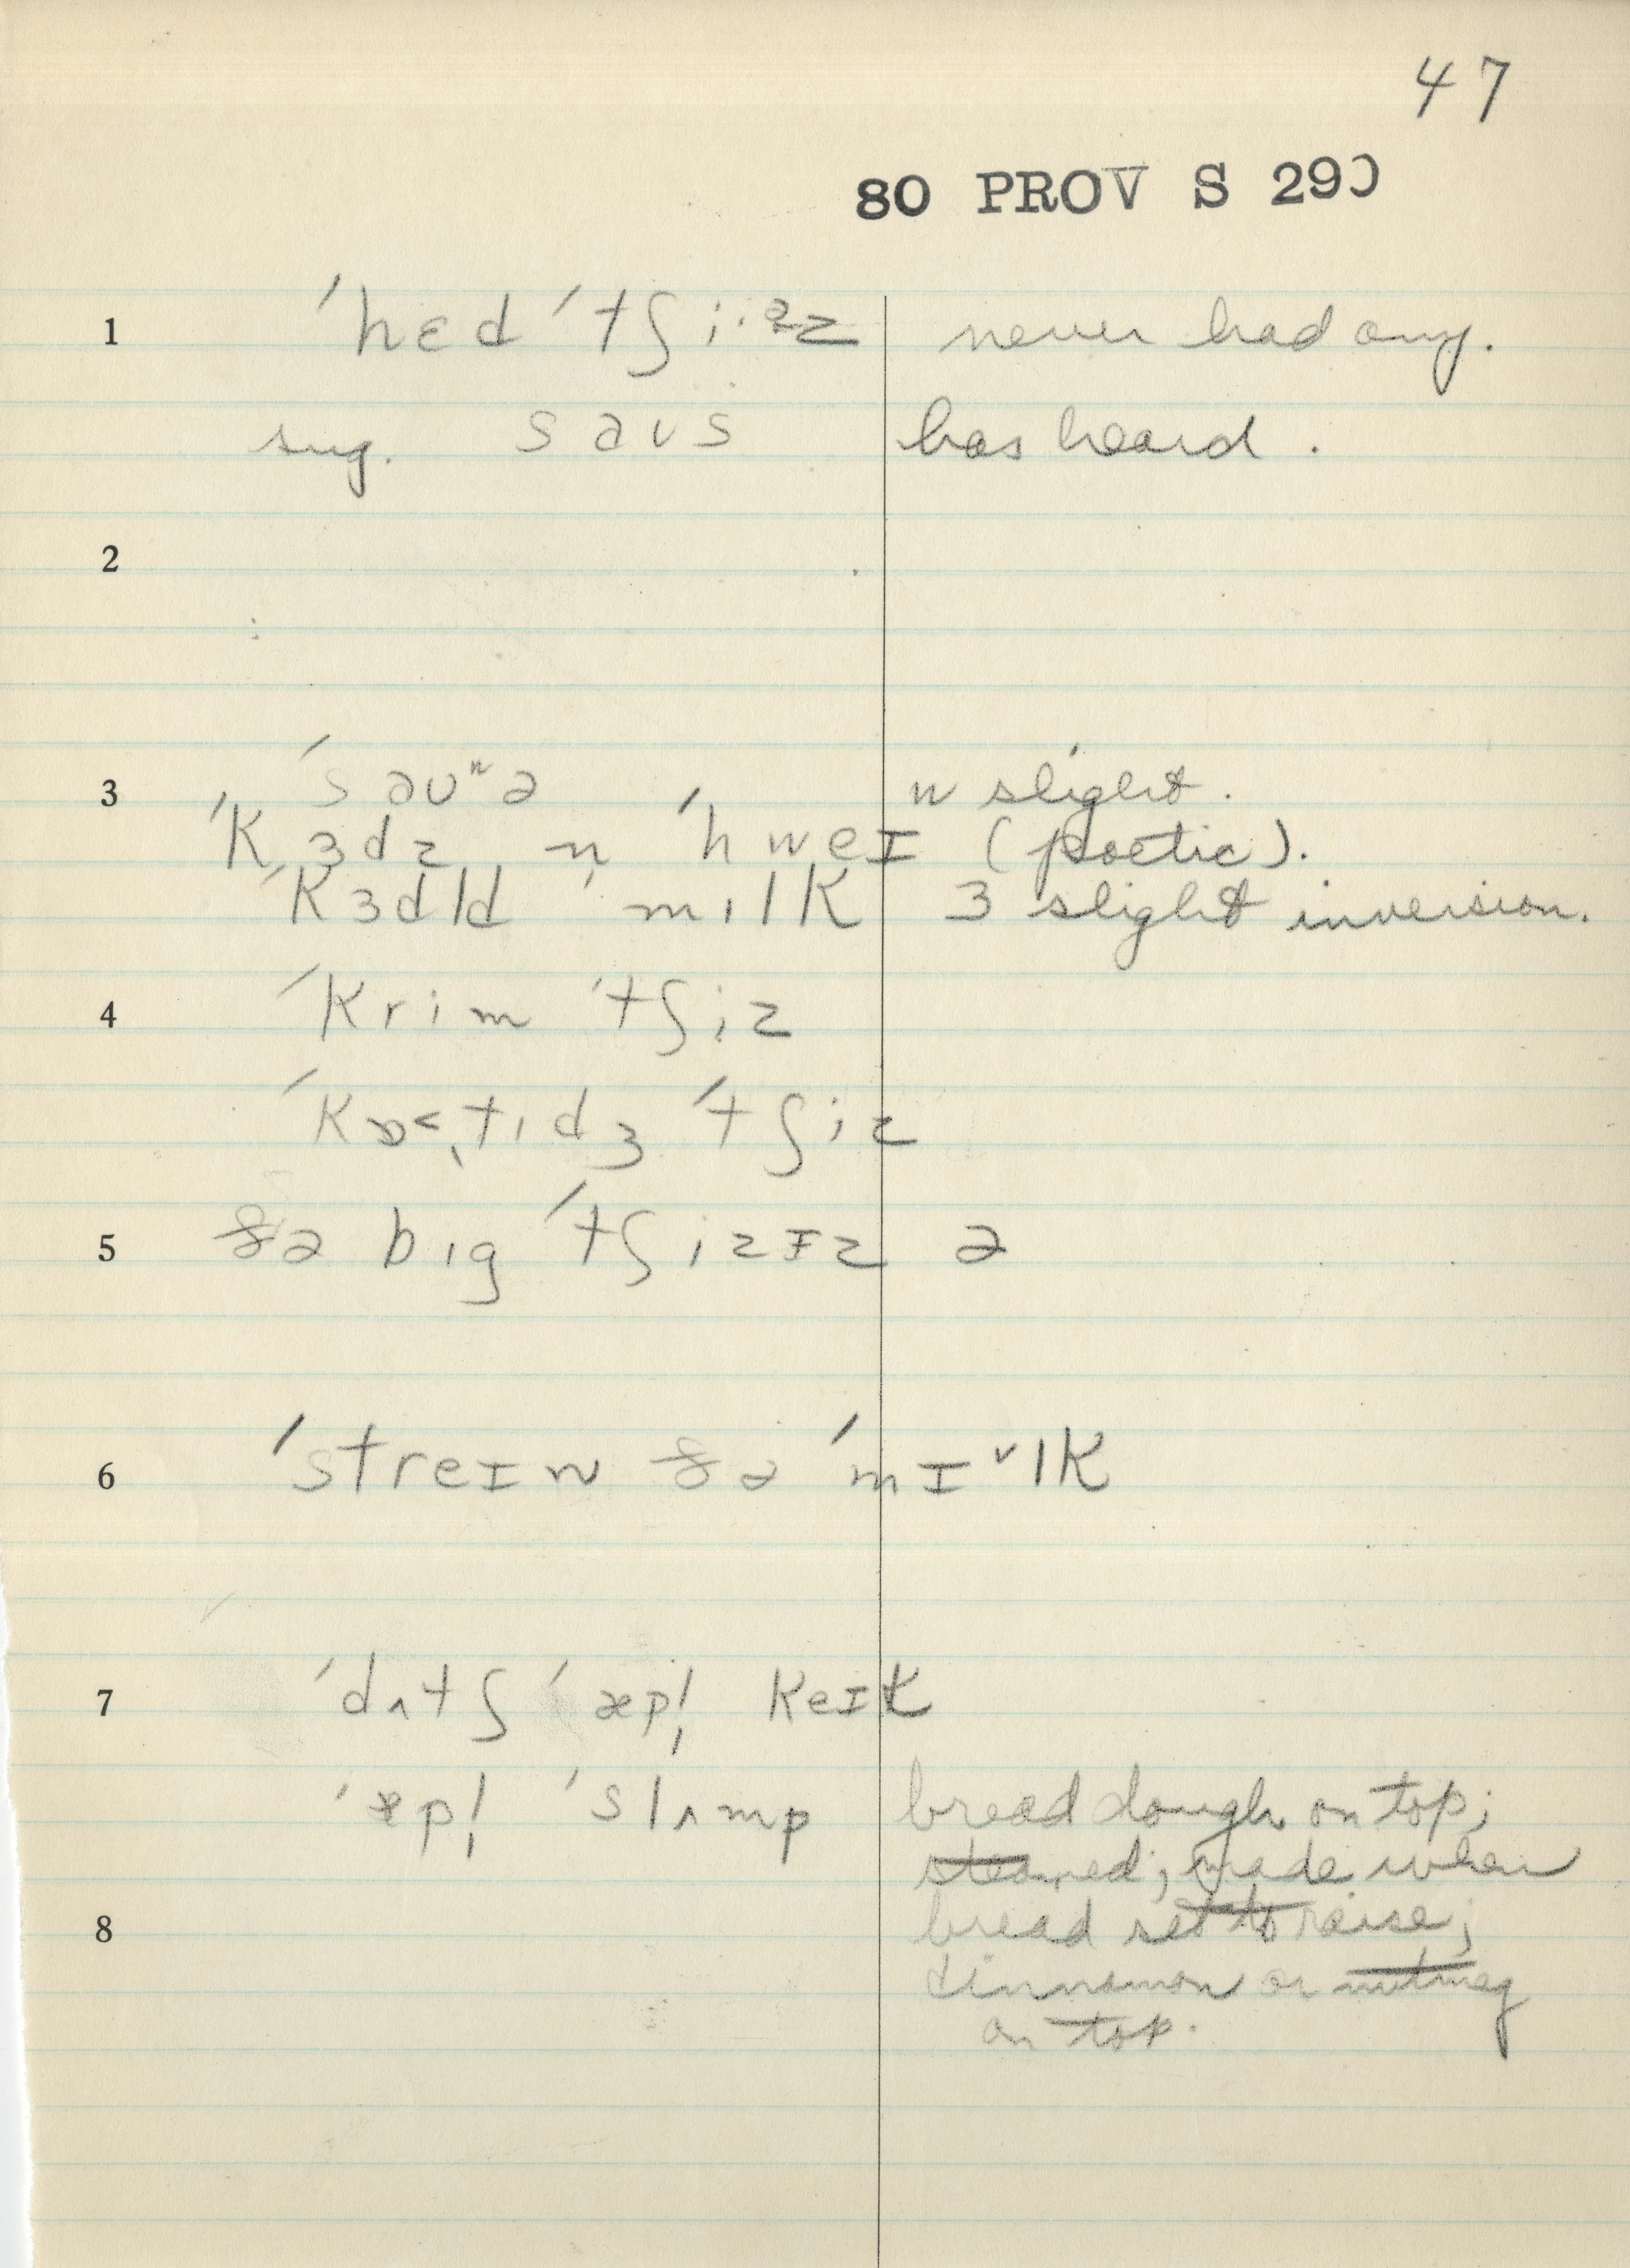 47
80 PROV S 290
1 ˈhɛd ˈtʃiˑᵊz never had any.
sug. saʊs has heard.
2
3 ˈsaʊⁿə n slight.
ˈkɜdz n̩ ˈhweɪ (poetic).
ˈkɜdl̩d ˈmɪlk ɜ slight inversion.
4 ˈkrim ˈtʃiz
ˈkɒ˂ˌtɪdʒ ˈtʃiz
5 ðə bɪg ˈtʃizɪz ə
6 ˈstreɪn ðə ˈmɪˇlk
7 ˈdʌtʃ ˈæpl̩ keɪk
ˈæpl̩ ˈslʌmp bread dough on top;
steamed; made when
8 bread set to raise;
cinnamon or nutmeg
on top.